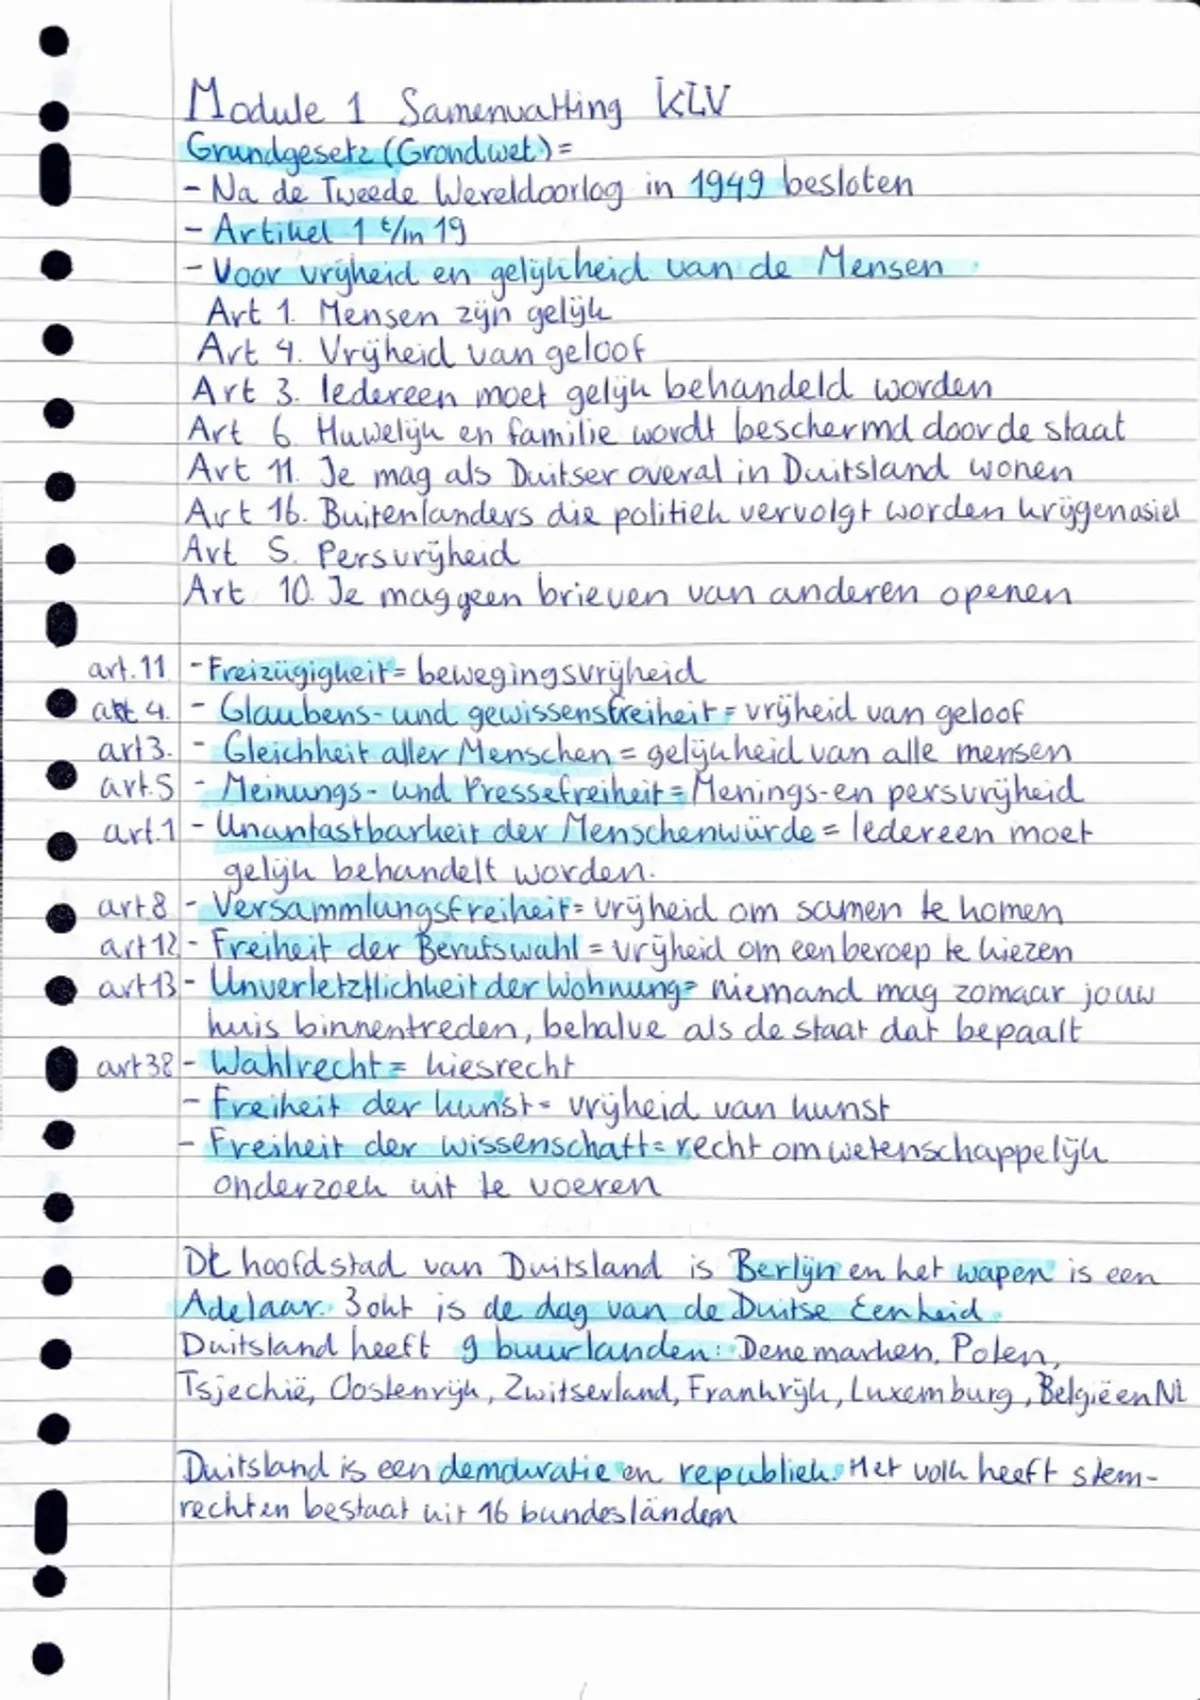 Module 1 Samenvatting KLV
Grundgesetz (Grondwet) =
- Na de Tweede Wereldoorlog in 1949 besloten
- Artikel 1 t/m 19
- Voor vrijheid en gelijkheid van de Mensen
Art 1. Mensen zijn gelijk
Art 4. Vrijheid van geloof
Art 3. Iedereen moet gelijk behandeld worden
Art 6. Huwelijk en familie wordt beschermd door de staat
Art 11. Je mag als Duitser overal in Duitsland wonen
Art 16. Buitenlanders die politiek vervolgt worden krijgen asiel
Art 5. Persvrijheid
Art 10. Je mag geen brieven van anderen openen
art.11 - Freizügigkeit = bewegingsvrijheid
art 4. - Glaubens- und gewissensfreiheit = vrijheid van geloof
art3. - Gleichheit aller Menschen = gelijkheid van alle mensen
art.5 - Meinungs- und Pressefreiheit = Menings- en persvrijheid
art.1 - Unantastbarkeit der Menschenwürde = Iedereen moet
gelijk behandelt worden.
art8 - Versammlungsfreiheit = vrijheid om samen te komen
art12 - Freiheit der Berufswahl = vrijheid om een beroep te kiezen
art13 - Unverletztlichkeit der Wohnung = niemand mag zomaar jouw
huis binnentreden, behalve als de staat dat bepaalt
art38 - Wahlrecht = kiesrecht
- Freiheit der kunst = vrijheid van kunst
- Freiheit der wissenschaft = recht om wetenschappelijk
onderzoek uit te voeren
De hoofdstad van Duitsland is Berlijn en het wapen is een
Adelaar. 3 okt is de dag van de Duitse Eenheid.
Duitsland heeft 9 buurlanden: Denemarken, Polen,
Tsjechië, Oostenrijk, Zwitserland, Frankrijk, Luxemburg, België en NL
Duitsland is een democratie en republiek. Het volk heeft stem-
rechten bestaat uit 16 bundesländern